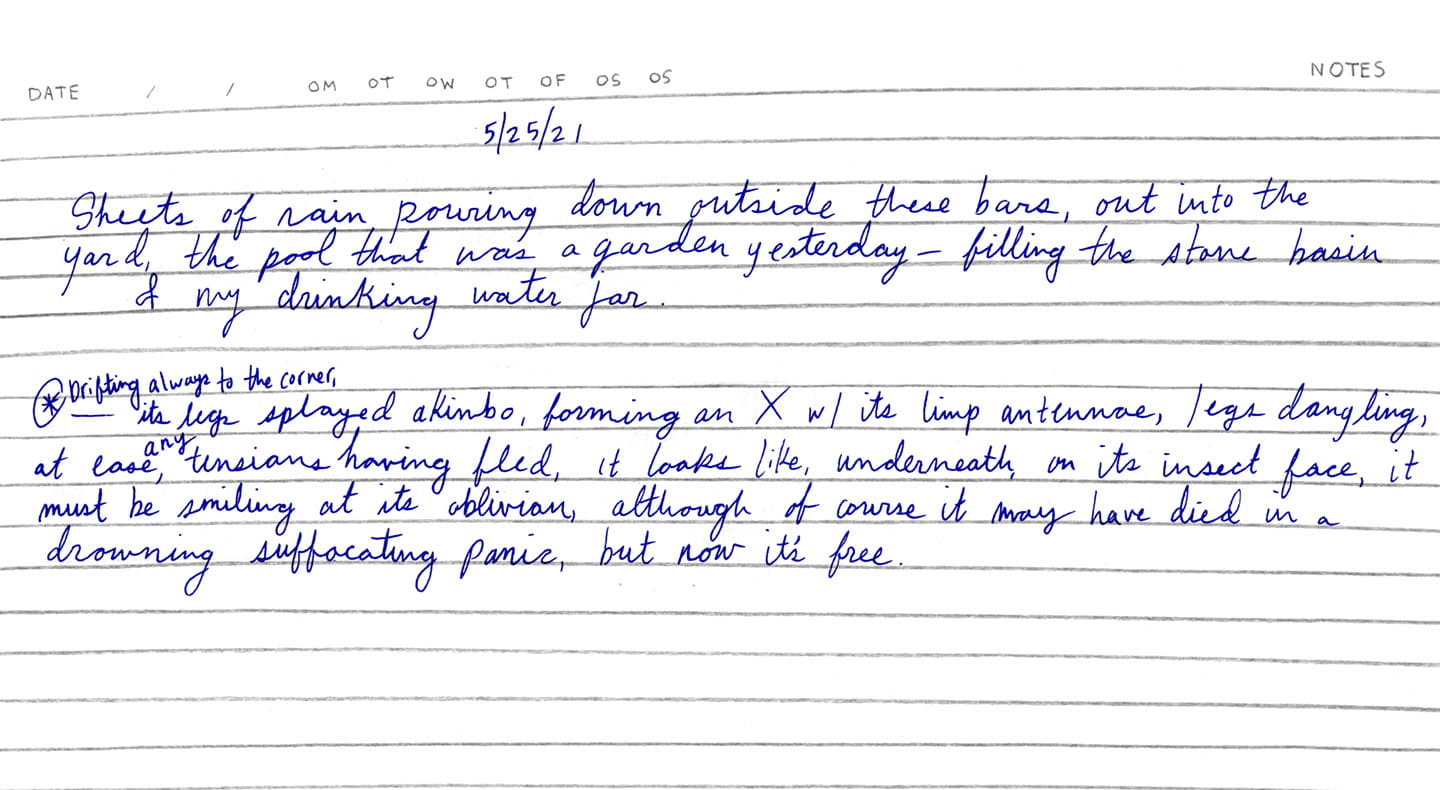 DATE / / OM OT OW OT OF OS OS NOTES
5/25/21
Sheets of rain pouring down outside these bars, out into the
yard, the pool that was a garden yesterday – filling the stone basin
& my drinking water jar.
Drifting always to the corner,
* its legs splayed akimbo, forming an X w/ its limp antennae, legs dangling,
any
at ease, tensions having fled, it looks like, underneath, on its insect face, it
must be smiling at its oblivion, although of course it may have died in a
drowning suffocating panic, but now it's free.